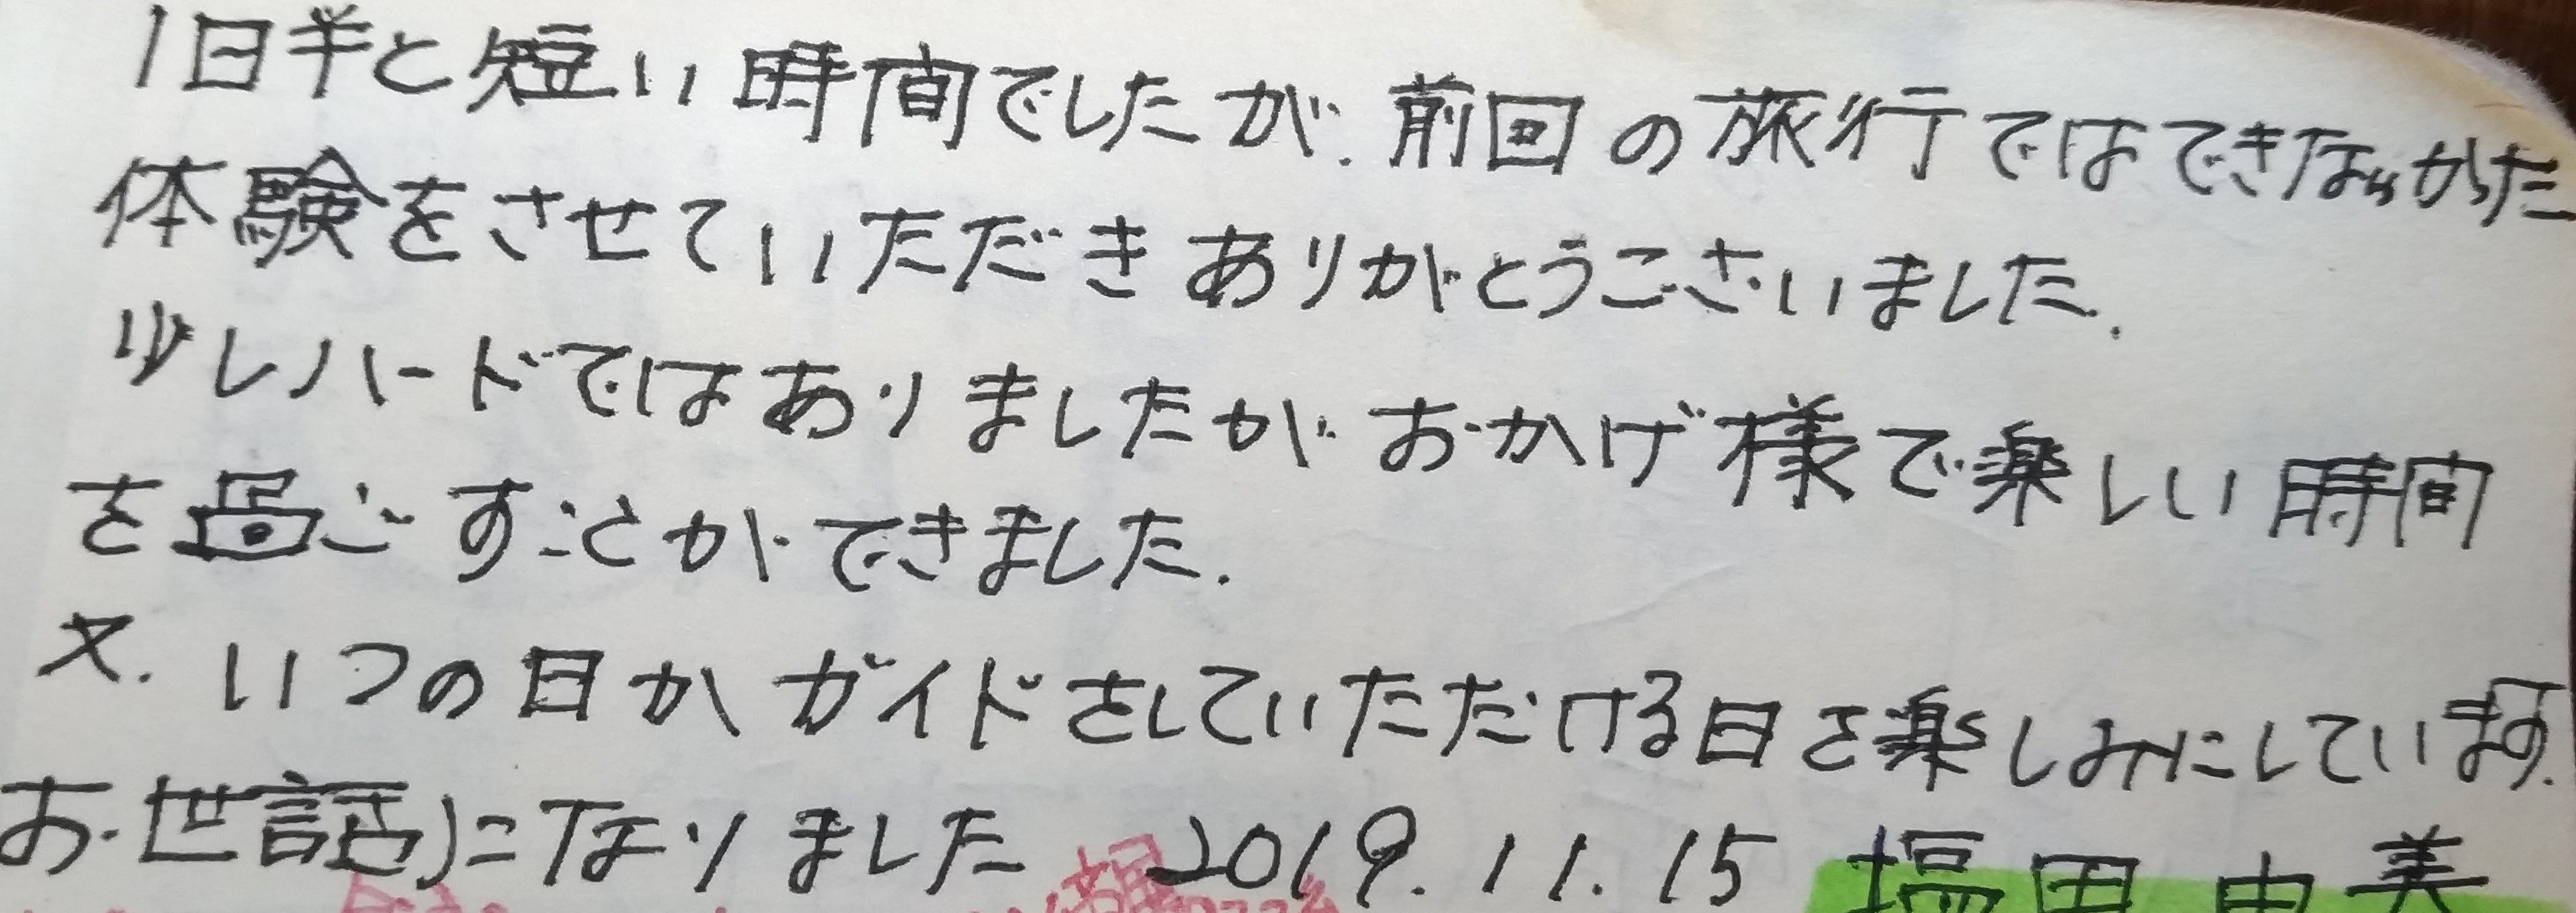 1日半と短い時間でしたが、前回の旅行ではできなかった
体験をさせていただきありがとうございました.
少しハードではありましたがおかげ様で楽しい時間
を過ごすことができました.
又.いつの日かガイドをしていただける日を楽しみにしています.
お世話になりました 2019.11.15 塩田由美